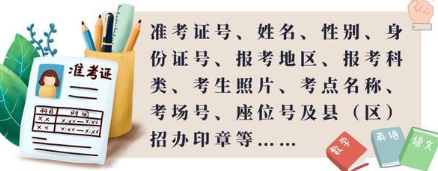 准考证号、姓名、性别、身
份证号、报考地区、报考科
类、考生照片、考点名称、
考场号、座位号及县（区）
招办印章等……
准考证
科目 时间
数学
英语
语文